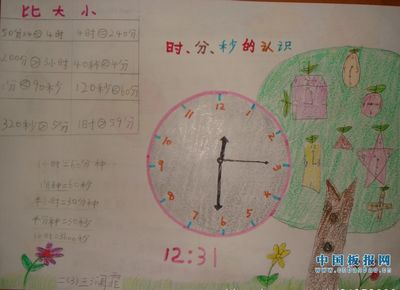 比大小
4时=240分
时、分、秒的认识
200分>3小时 40秒<4分
1分<90秒 120秒<60分
320秒>5分 1时>59分
12
11
1
10
2
9
3
8
4
7
5
6
1小时=60分钟
1分钟=60秒
半小时=30分钟
半分钟=30秒
1小时=3600秒
12:31
中国板报网